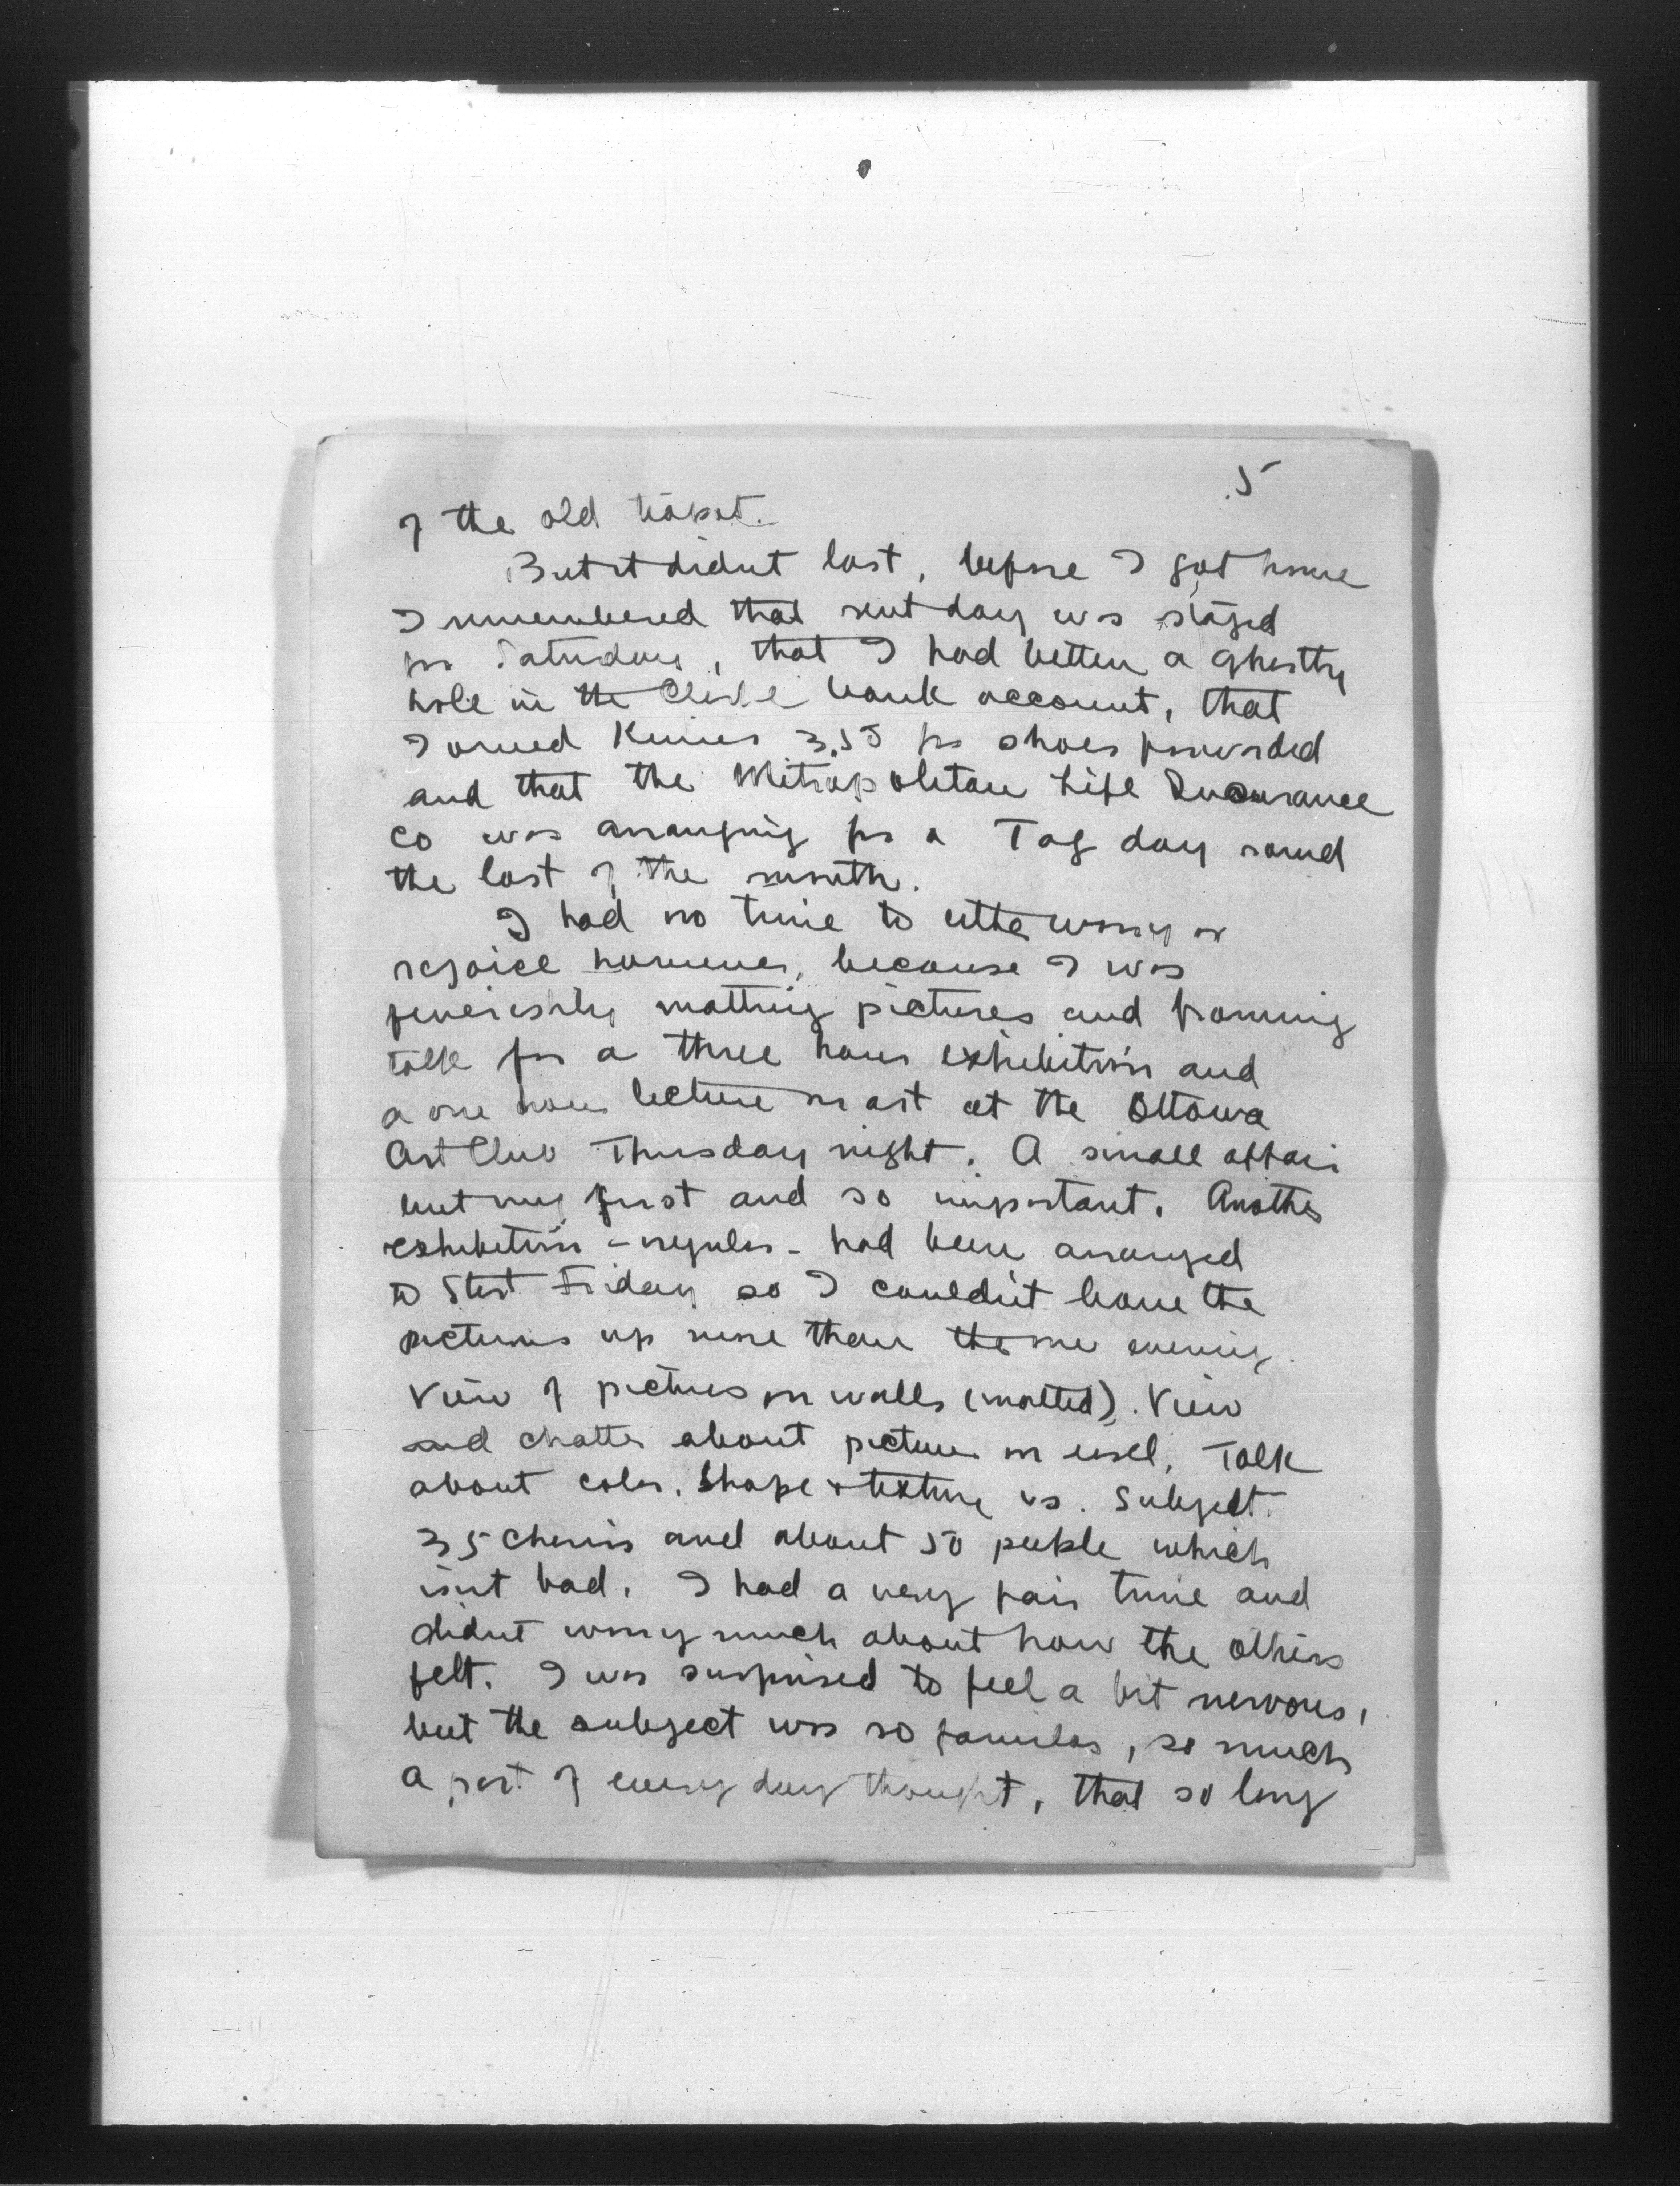 5
of the old teapot.
But it didnt last, before I got home
I remembered that rent day was staged
for Saturday, that I had bitten a ghastly
hole in the Cleve bank account, that
I owed Kinies 3.55 for shoes forwarded
and that the Metropolitan Life Insurance
Co was arranging for a Tag day round
the last of the month.
I had no time to eithe worry or
rejoice however, because I was
feverishly matting pictures and framing
talk for a three hour exhibition and
a one hour lecture on art at the Ottawa
Art Club Thursday night. A small affair
but my first and so important. Another
exhibition - regular - had been arranged
to start Friday so I couldn't leave the
pictures up more than the one evening.
View of pictures on walls (matted). View
and chatter about picture on easel. Talk
about color, shape & texture vs. subject.
35 chairs and about 50 people which
isnt bad. I had a very fair time and
didnt worry much about how the others
felt. I was surprised to feel a bit nervous,
but the subject was so familar, so much
a part of every day thought, that so long